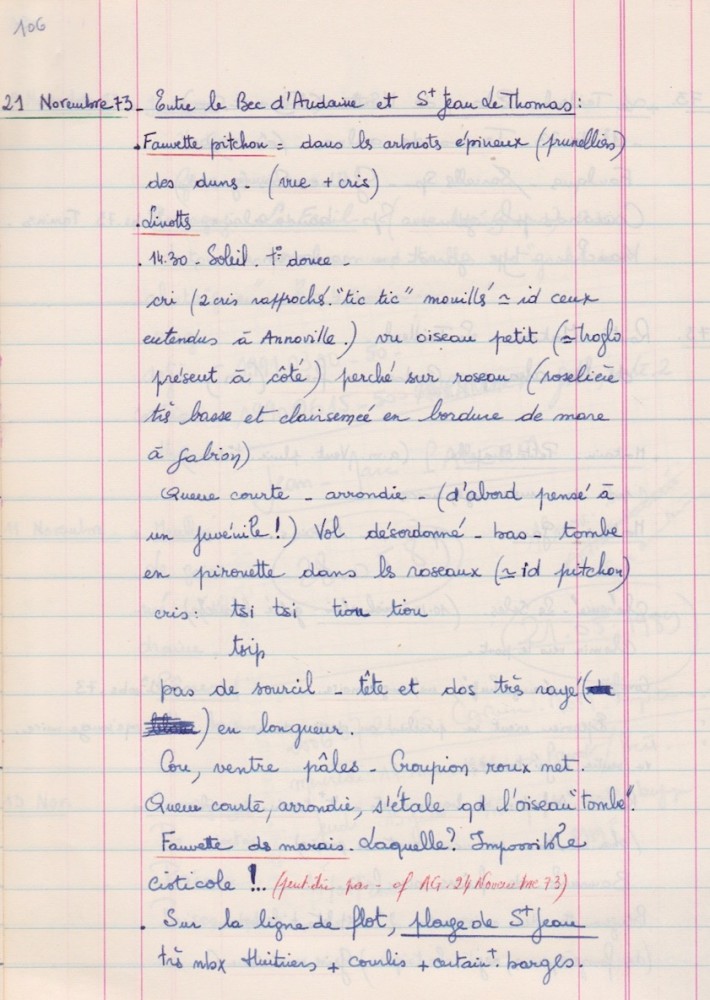 106
21 Novembre 73 - Entre le Bec d'Andaine et St Jean Le Thomas :
. Fauvette pitchou = dans ls arbustes épineux (prunelliers)
des duns - (vue + cris)
. Linotts
. 14.30 - Soleil - t° douce -
cri (2 cris rapprochés. "tic tic" mouillés ≃ id ceux
entendus à Annoville.) vu oiseau petit (≃ troglo
présent à côté) perché sur roseau (roselière
très basse et clairsemée en bordure de mare
à gabion)
Queue courte - arrondie - (d'abord pensé à
un juvénile !) Vol désordonné - bas - tombe
en pirouette dans ls roseaux (≃ id pitchou)
cris : tsi tsi tiou tiou
tsip
pas de sourcil - tête et dos très rayé (
) en longueur.
Cou, ventre pâles - Croupion roux net.
Queue courte, arrondie, s'étale qd l'oiseau "tombe".
Fauvette ds marais. Laquelle ? Impossible
cisticole !.. (peut être pas - cf AG. 24 Novembre 73)
. Sur la ligne de flot, plage de St Jean
très nbx Huitriers + courlis + certain<sup>t</sup>. barges.